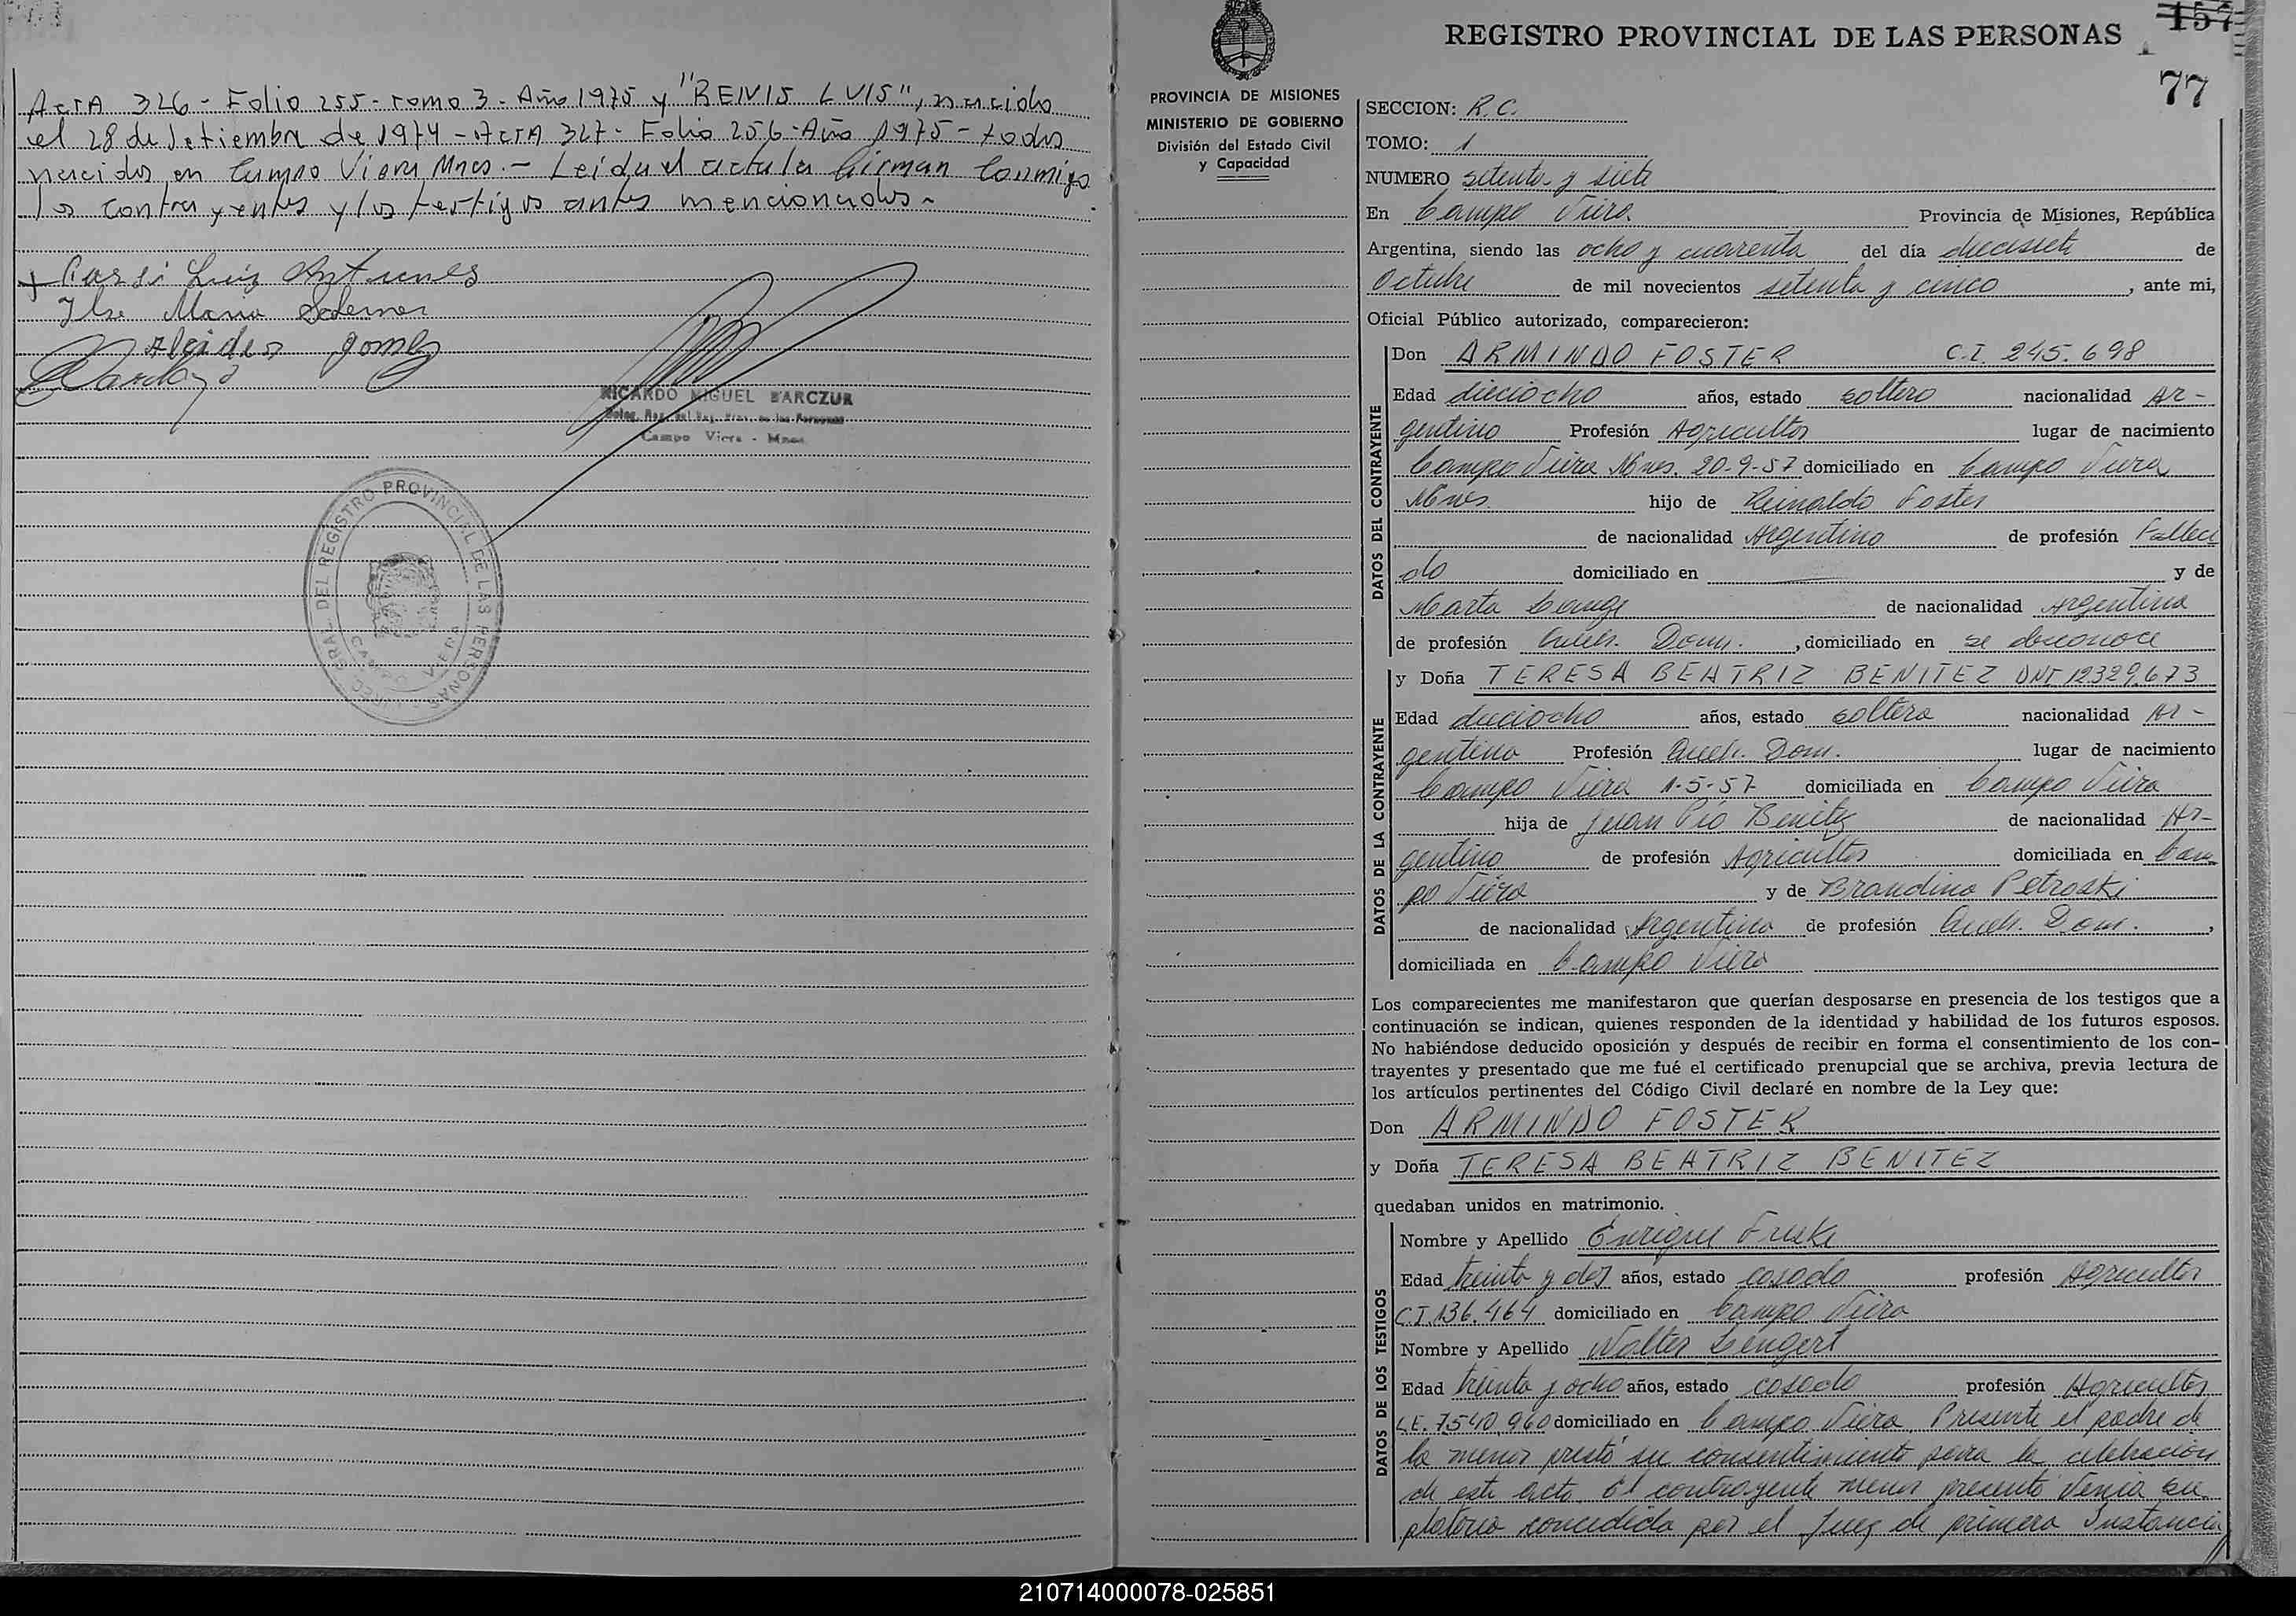 ActA 326 - Folio 255 - tomo 3 - Año 1975 y "REIVIS LUIS", nacido
el 28 de Setiembre de 1974 - ActA 327 - Folio 256 - Año 1975 - todos
nacidos en Campo Viera Mnes. - Leida el acta la firman Conmigo
los contrayentes y los testigos antes mencionados -
Luis Antunes
Ilse Maria
Alcides gomez
RICARDO MIGUEL BARCZUK
Campo Viera - Mnes.
DEL REGISTRO PROVINCIAL DE LAS PERSONAS
CAMPO VIERA
REGISTRO PROVINCIAL DE LAS PERSONAS
157
77
PROVINCIA DE MISIONES
MINISTERIO DE GOBIERNO
División del Estado Civil
y Capacidad
SECCION: R.C.
TOMO: 1
NUMERO setenta y siete
En Campo Viera Provincia de Misiones, República
Argentina, siendo las ocho y cuarenta del día diecisiete de
Octubre de mil novecientos setenta y cinco, ante mi,
Oficial Público autorizado, comparecieron:
DATOS DEL CONTRAYENTE
Don ARMINDO FOSTER C.I. 245.698
Edad dieciocho años, estado soltero nacionalidad Ar-
gentino Profesión Agricultor lugar de nacimiento
Campo Viera Mnes. 20-9-57 domiciliado en Campo Viera
Mnes. hijo de Reinaldo Foster
de nacionalidad Argentino de profesión Falleci
do domiciliado en y de
Marta de nacionalidad Argentina
de profesión Queh. Dom., domiciliado en se desconoce
DATOS DE LA CONTRAYENTE
y Doña TERESA BEATRIZ BENITEZ DNI 12329.673
Edad dieciocho años, estado soltera nacionalidad Ar-
gentina Profesión Queh. Dom. lugar de nacimiento
Campo Viera 1-5-57 domiciliada en Campo Viera
hija de Juan Pio Benitez de nacionalidad Ar-
gentino de profesión Agricultor domiciliada en Cam
po Viera y de Brandina Petroski
de nacionalidad Argentina de profesión Queh. Dom.,
domiciliada en Campo Viera
Los comparecientes me manifestaron que querían desposarse en presencia de los testigos que a
continuación se indican, quienes responden de la identidad y habilidad de los futuros esposos.
No habiéndose deducido oposición y después de recibir en forma el consentimiento de los con-
trayentes y presentado que me fué el certificado prenupcial que se archiva, previa lectura de
los artículos pertinentes del Código Civil declaré en nombre de la Ley que:
Don ARMINDO FOSTER
y Doña TERESA BEATRIZ BENITEZ
quedaban unidos en matrimonio.
DATOS DE LOS TESTIGOS
Nombre y Apellido Enrique
Edad treinta y dos años, estado casado profesión Agricultor
C.I. 136.464 domiciliado en Campo Viera
Nombre y Apellido Walter
Edad treinta y ocho años, estado casado profesión Agricultor
L.E. 7.540.960 domiciliado en Campo Viera Presente el padre de
la menor prestó su consentimiento para la celebración
de este acto. El contrayente menor presentó Venia su
pletoria concedida por el Juez de primera Instancia
210714000078-025851